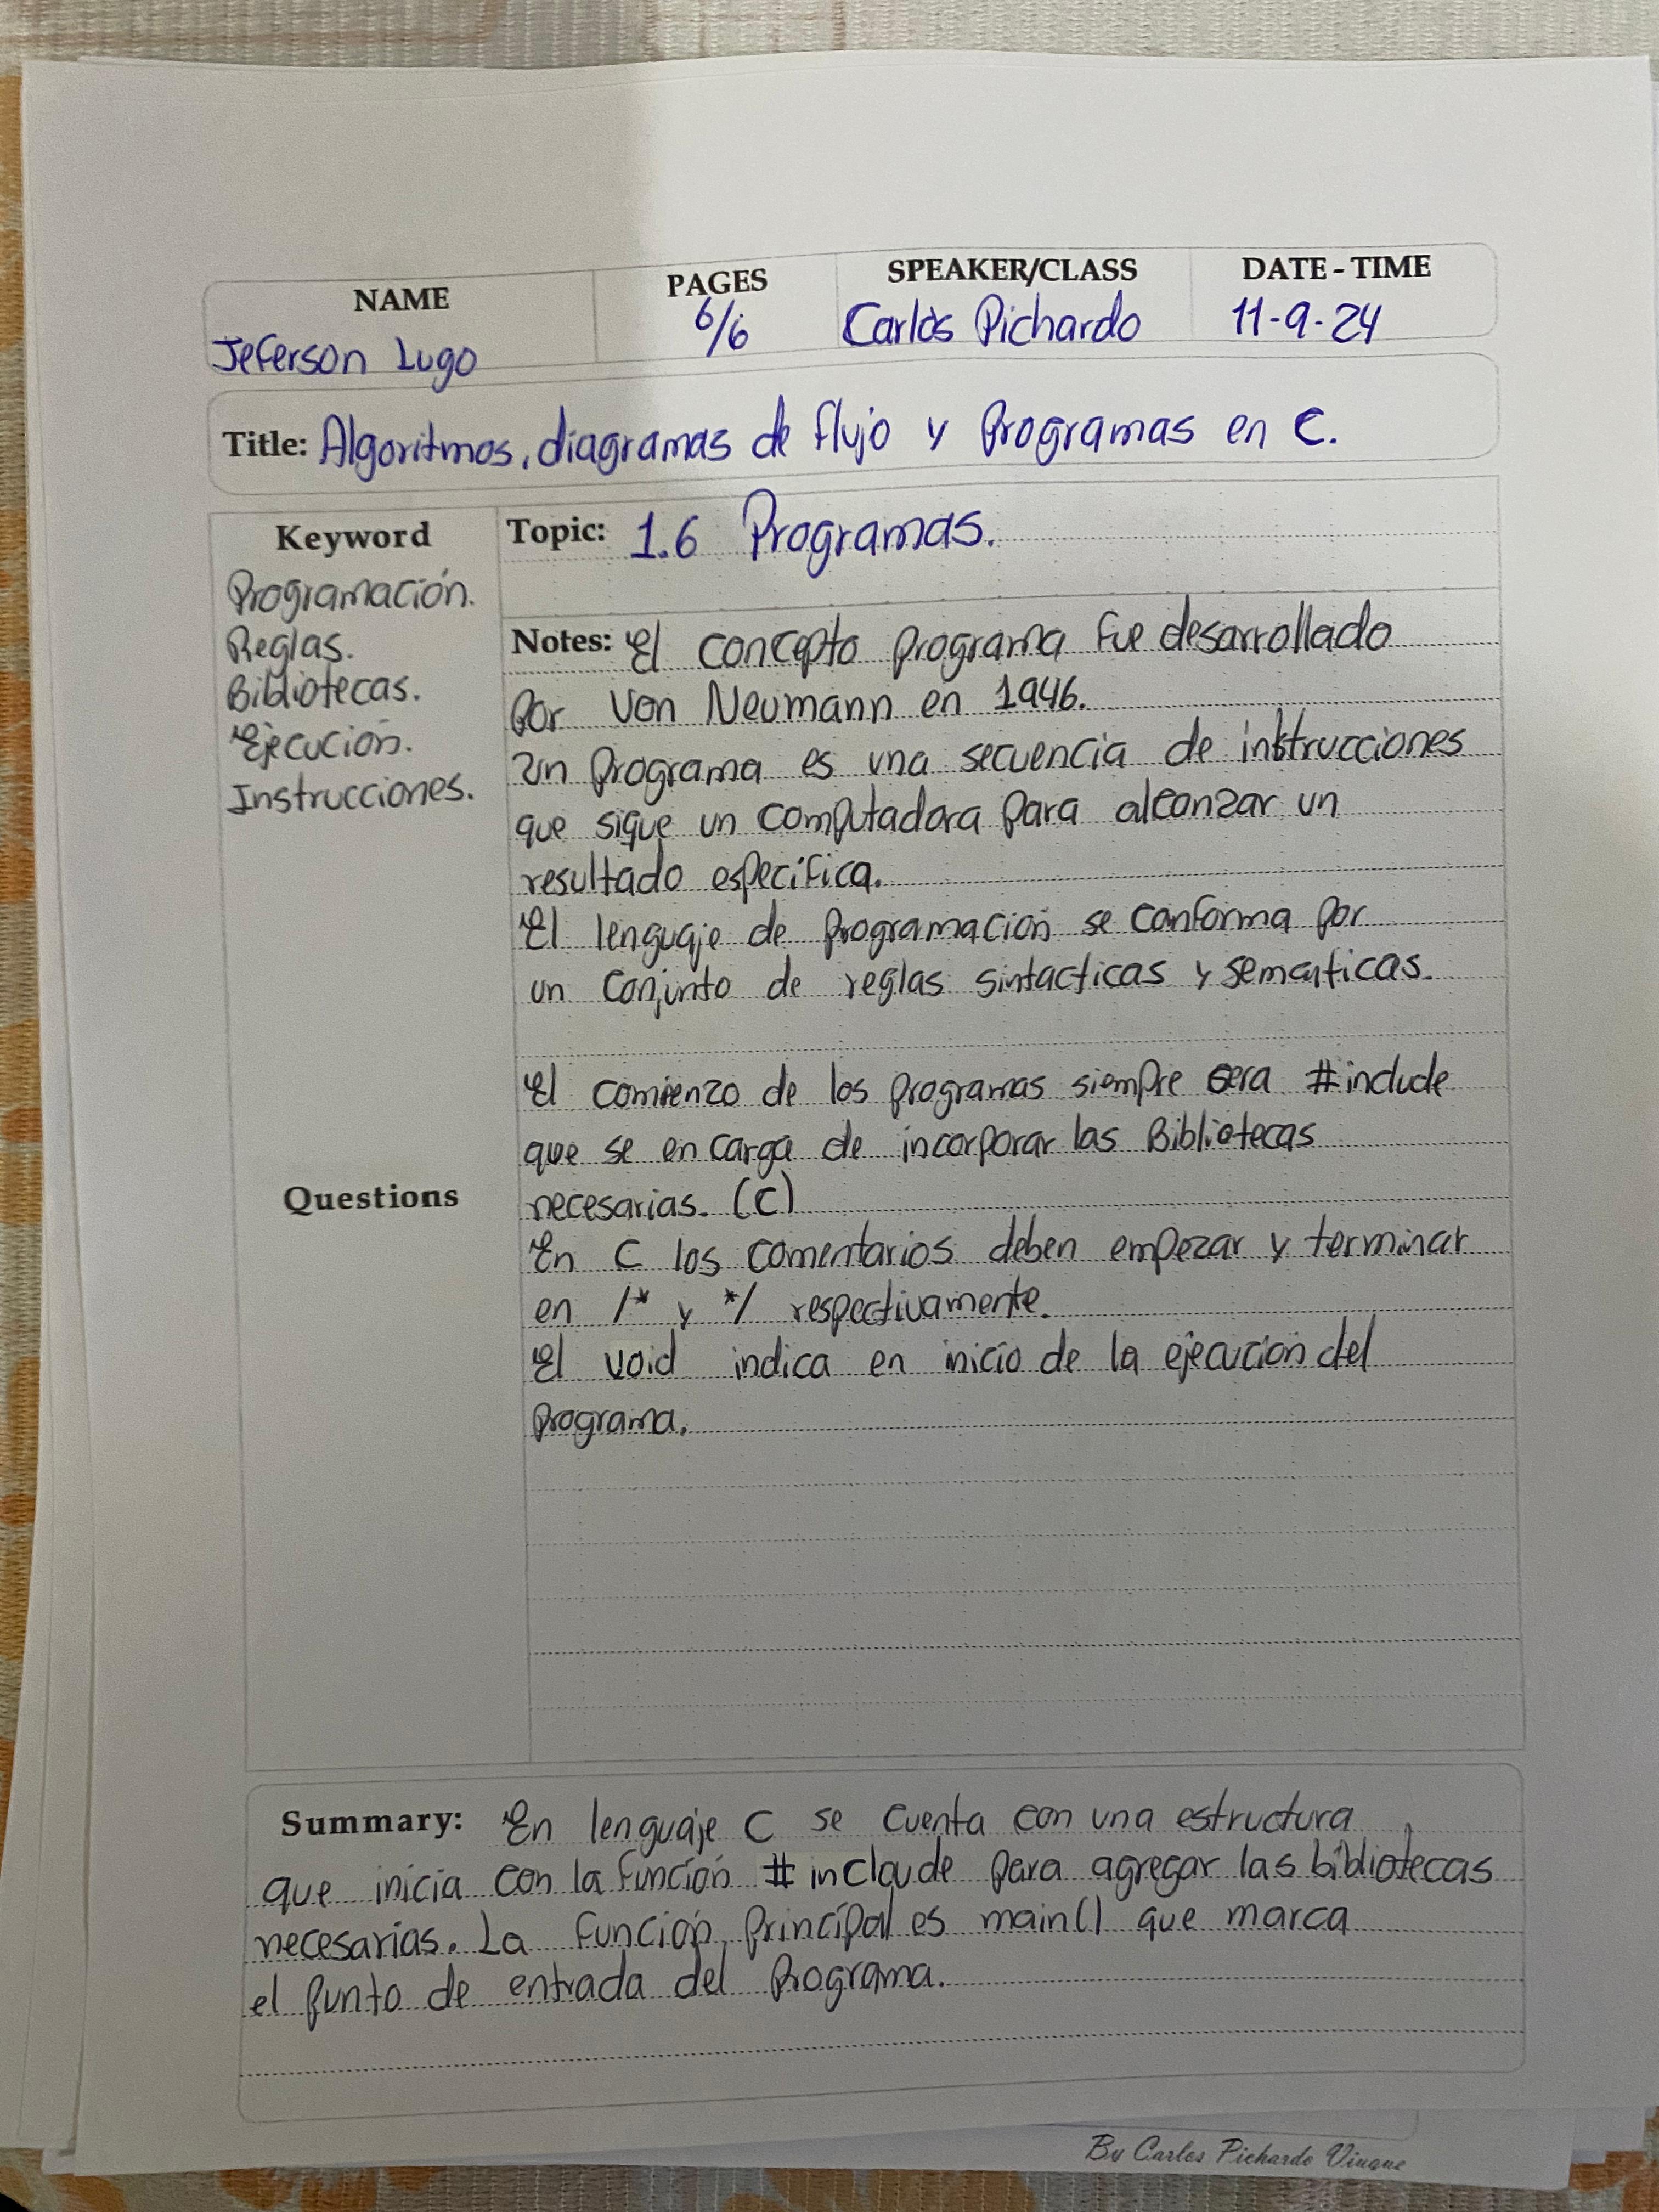 NAME
PAGES
SPEAKER/CLASS
DATE - TIME
Jeferson Lugo
6/6
Carlos Pichardo
11-9-24
Title: Algoritmos, diagramas de flujo y Programas en C.
Keyword
Programación.
Reglas.
Bibliotecas.
Ejecución.
Instrucciones.
Topic: 1.6 Programas.
Notes: El concepto programa fue desarrollado
Por Von Neumann en 1946.
Un Programa es una secuencia de instrucciones
que sigue un computadora para alcanzar un
resultado especifica.
El lenguaje de Programación se conforma por
un conjunto de reglas sintacticas y sematicas.
El comienzo de los programas siempre sera #include
que se en carga de incorporar las Bibliotecas
necesarias. (C)
En C los comentarios deben empezar y terminar
en /* y */ respectivamente.
El void indica en inicio de la ejecución del
Programa.
Questions
Summary: En lenguaje C se cuenta con una estructura
que inicia con la función # incloude para agregar las bibliotecas
necesarias. La función principal es main() que marca
el punto de entrada del Programa.
By Carlos Pichardo Viuque